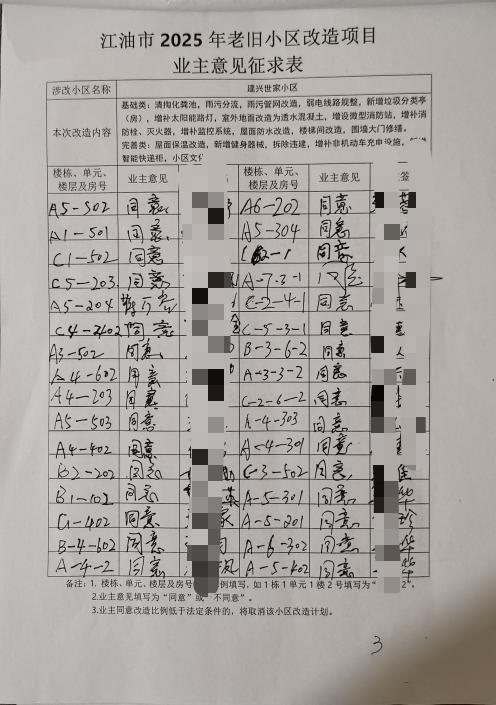 江油市 2025 年老旧小区改造项目
业主意见征求表
涉改小区名称 建兴世家小区
本次改造内容 基础类：清掏化粪池，雨污分流，雨污管网改造，弱电线路规整，新增垃圾分类亭
（房），增补太阳能路灯，室外地面改造为透水混凝土，增设微型消防站，增补消
防栓、灭火器，增补监控系统，屋面防水改造，楼梯间改造，围墙大门修缮。
完善类：屋面保温改造，新增健身器械，拆除违建，增补非机动车充电设施，
智能快递柜，小区文化
楼栋、单元、楼层及房号 业主意见 楼栋、单元、楼层及房号 业主意见 签
A5-502 同意 A6-202 同意
A1-501 同意 A5-304 同意
C1-502 同意 同意
C5-203 同意 A-7-3-1 同意
A5-204 C-2-4-1 同意
C4-2402 同意 C-5-3-1 同意
A3-502 同意 B-3-6-2 同意
A4-602 同意 A-3-3-2 同意
A4-203 同意 C-2-6-2 同意
A5-503 同意 A-4-303 同意
A4-402 同意 A-4-301 同意
B2-202 同意 C-3-502 同意
B1-102 同意 A-5-301 同意
C1-402 同意 A-5-201 同意
B-4-602 同意 A-6-302 同意
A-4-2 同意 A-5-402 同意
备注：1. 楼栋、单元、楼层及房号 例填写，如 1 栋 1 单元 1 楼 2 号填写为“ 2”。
2.业主意见填写为“同意”或 不同意”。
3.业主同意改造比例低于法定条件的，将取消该小区改造计划。
3